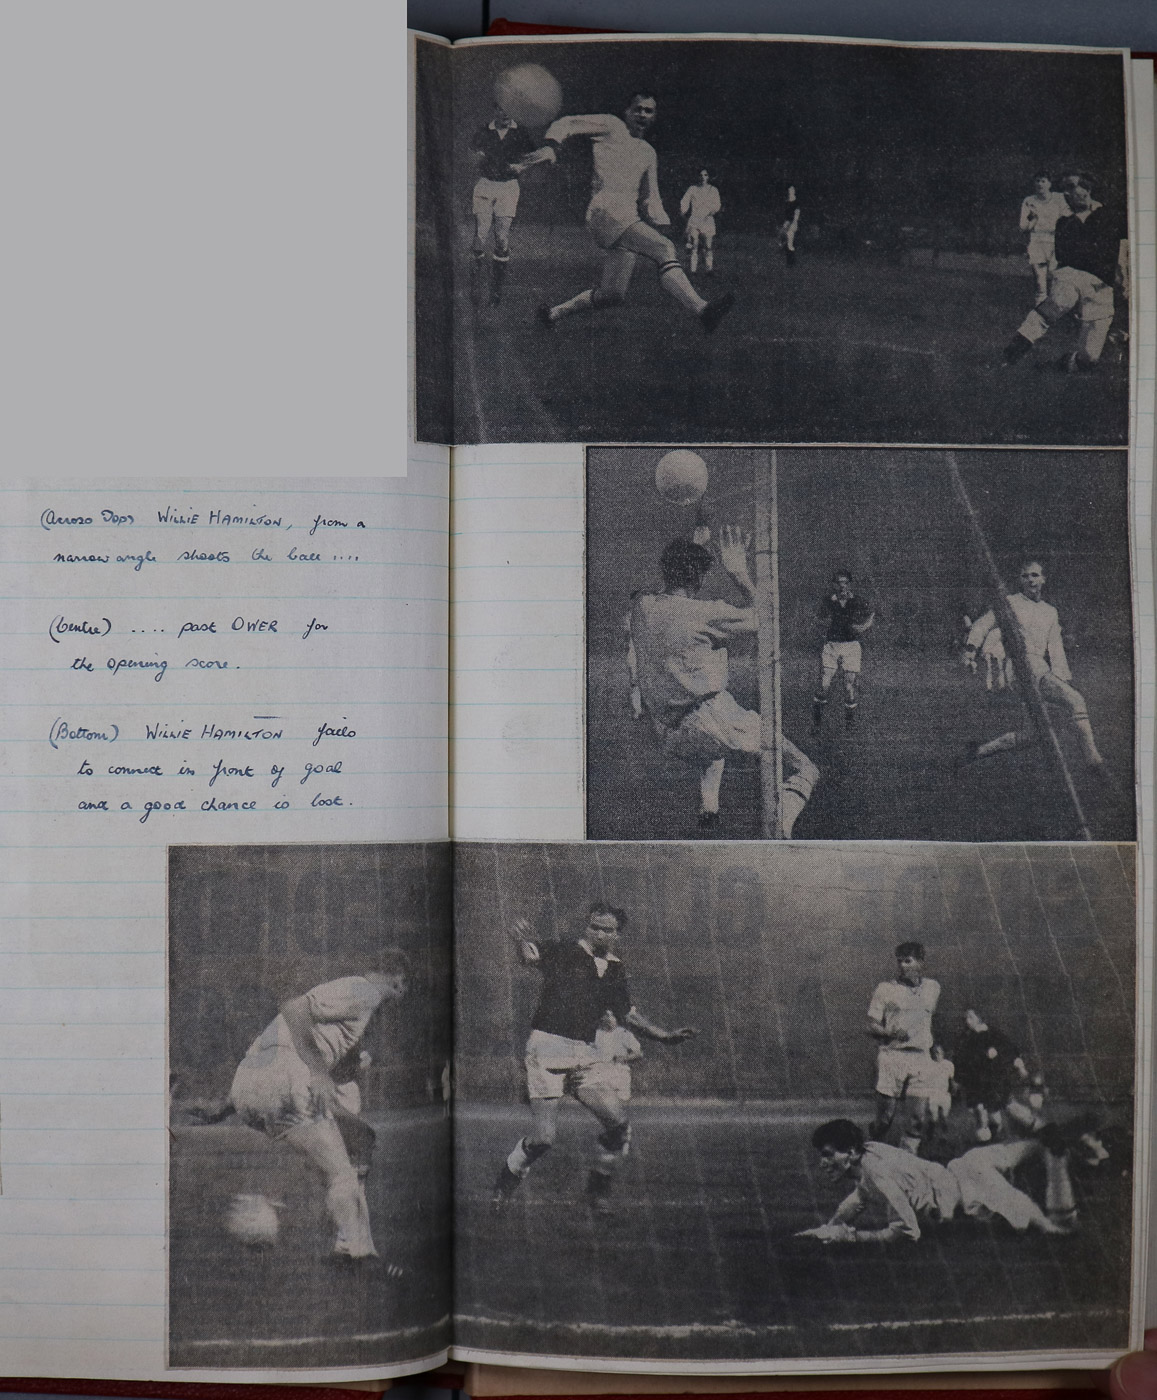 (Across Top) WILLIE HAMILTON, from a
narrow angle shoots the ball ....
(Centre) .... past OWER for
the opening score.
(Bottom) WILLIE HAMILTON fails
to connect in front of goal
and a good chance is lost.